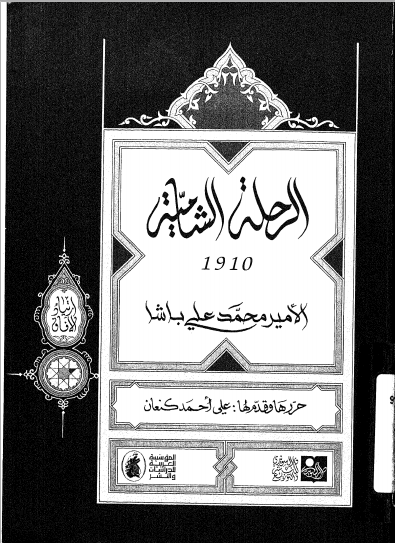 الرحلة الشامية
1910
الأمير محمد علي باشا
ارتياد
الآفاق
حررها وقدم لها: علي أحمد كنعان
المؤسسة
العربية
للدراسات
والنشر